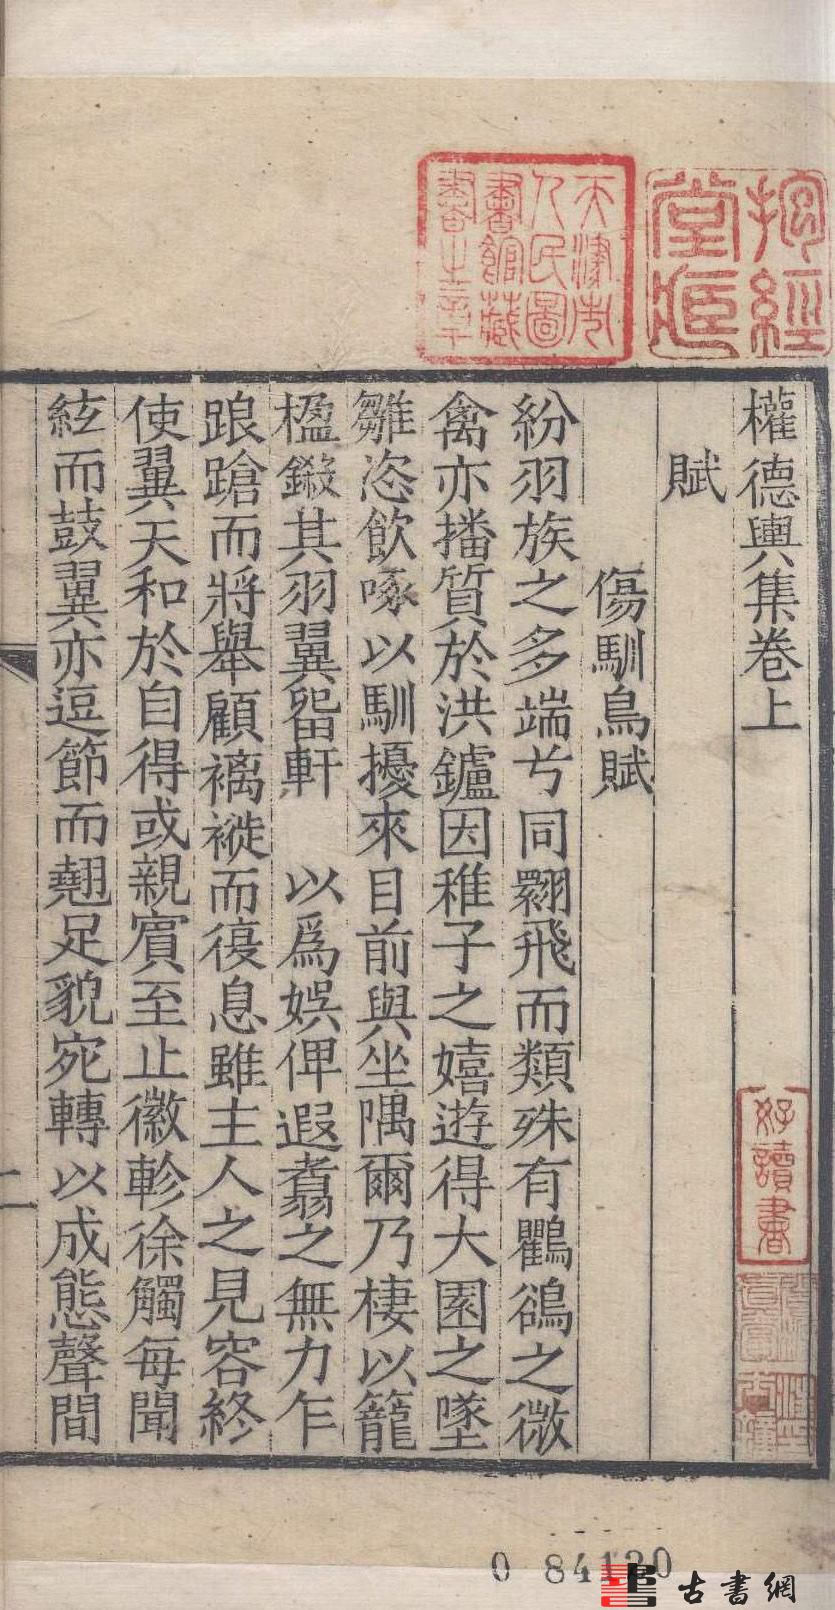 權德輿集卷上
賦
傷馴鳥賦
紛羽族之多端兮同翾飛而類殊有鸜鵒之微
禽亦播質於洪鑪因稚子之嬉遊得大園之墜
雛恣飲啄以馴擾來目前與坐隅爾乃棲以籠
楹鎩其羽翼畱軒　以爲娛俾遐翥之無力乍
踉蹌而將舉顧褵褷而復息雖主人之見容終
使翼天和於自得或親賓至止徽軫徐觸每聞
絃而鼓翼亦逗節而翹足貌宛轉以成態聲間
二
抱經堂藏
天津市人民圖書館藏書之章
好讀書
0 84120
古書網